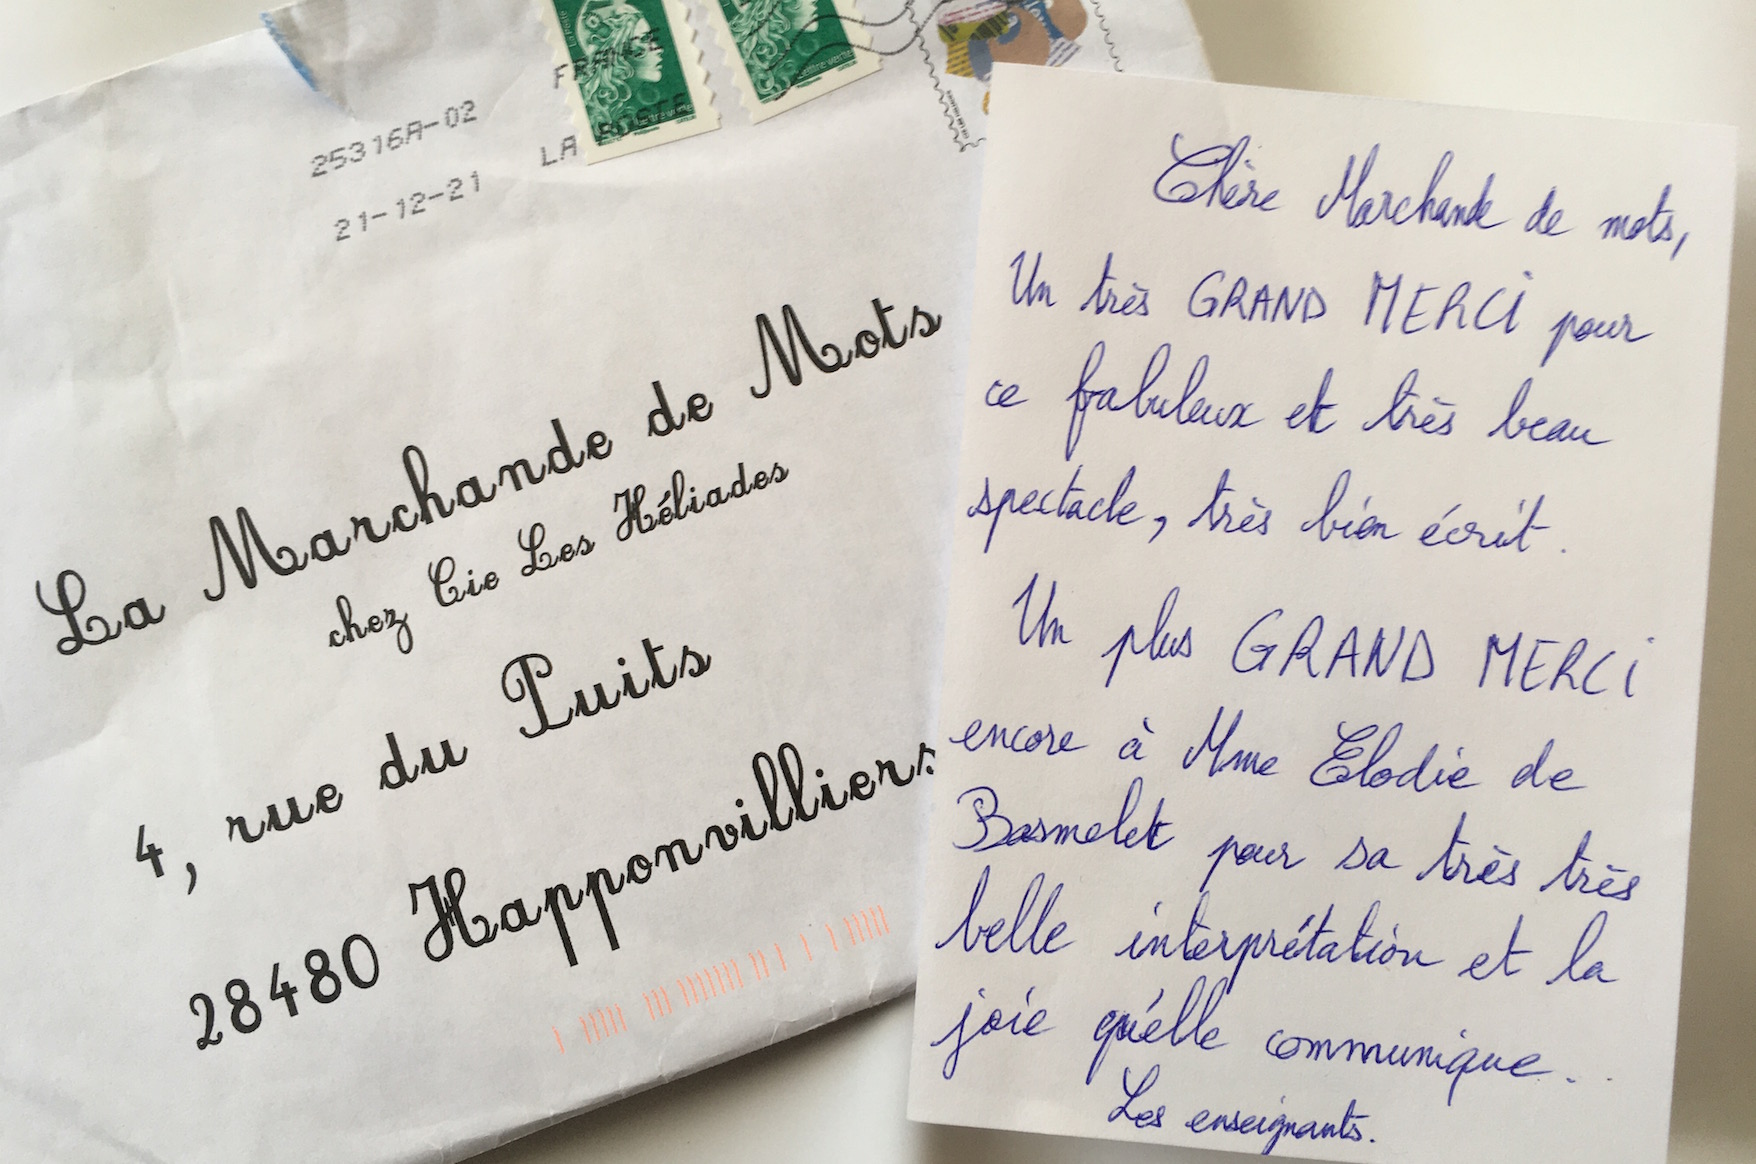 FRANCE
LA POSTE
25316A-02
21-12-21
La Marchande de Mots
chez Cie Les Héliades
4, rue du Puits
28480 Happonvilliers
Chère Marchande de mots,
Un très GRAND MERCi pour
ce fabuleux et très beau
spectacle, très bien écrit.
Un plus GRAND MERCi
encore à Mme Elodie de
Basmelet pour sa très très
belle interprétation et la
joie qu'elle communique...
Les enseignants.